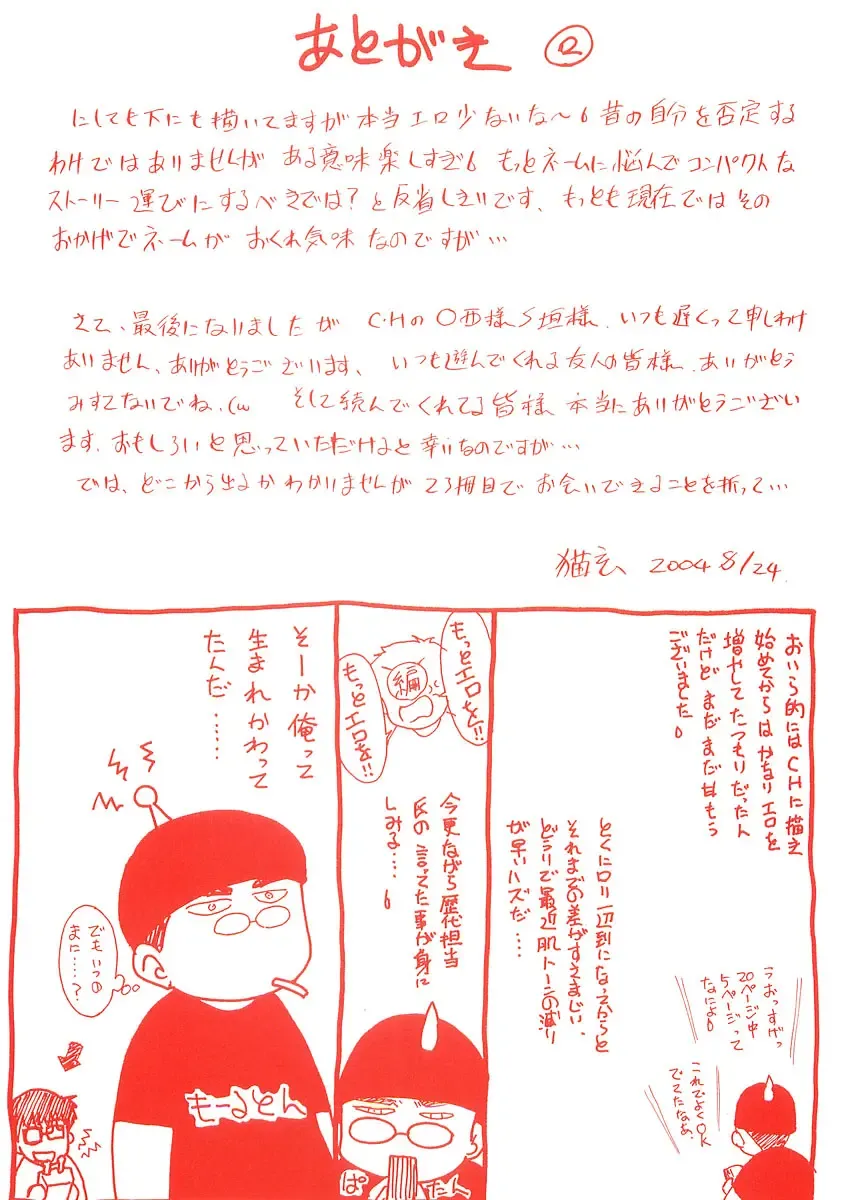 あとがき ②
にしても下にも描いてますが本当エロ少ないな〜。昔の自分を否定する
わけではありませんが ある意味楽しすぎ。もっとネームに悩んでコンパクトな
ストーリー運びにするべきでは?と反省しきりです、もっとも現在ではその
おかげでネームが おくれ気味なのですが…
さて、最後になりましたが C・Hの〇西様 S垣様、いつも遅くって申しわけ
ありません、ありがとうございます、いつも遊んでくれる友人の皆様、ありがとう
みすてないでね、(w そして読んでくれてる皆様 本当にありがとうござい
ます、おもしろいと思っていただけると幸いなのですが…
では、どこから出るかわかりませんが 23冊目で お会いできることを祈って…
猫玄 2004 8/24
おいら的にはCHに描き
始めてからは かなりエロを
増やしてたつもりだったん
だけど まだまだ甘もう
ございました。
うおっすげっ
20ページ中
5ページって
なによ。
これでよくOK
でてたなぁ、
とくにロリ一辺到になってからと
それまでの差がすさまじい、
どうりで最近肌トーンの減り
が早いハズだ……
もっとエロを!!
編
もっとエロを!!
今更ながら歴代担当
氏の言ってた事が身に
しみる……。
ぱたん
そーか俺って
生まれかわって
たんだ……
でもいつの
まに……?
もーるとん